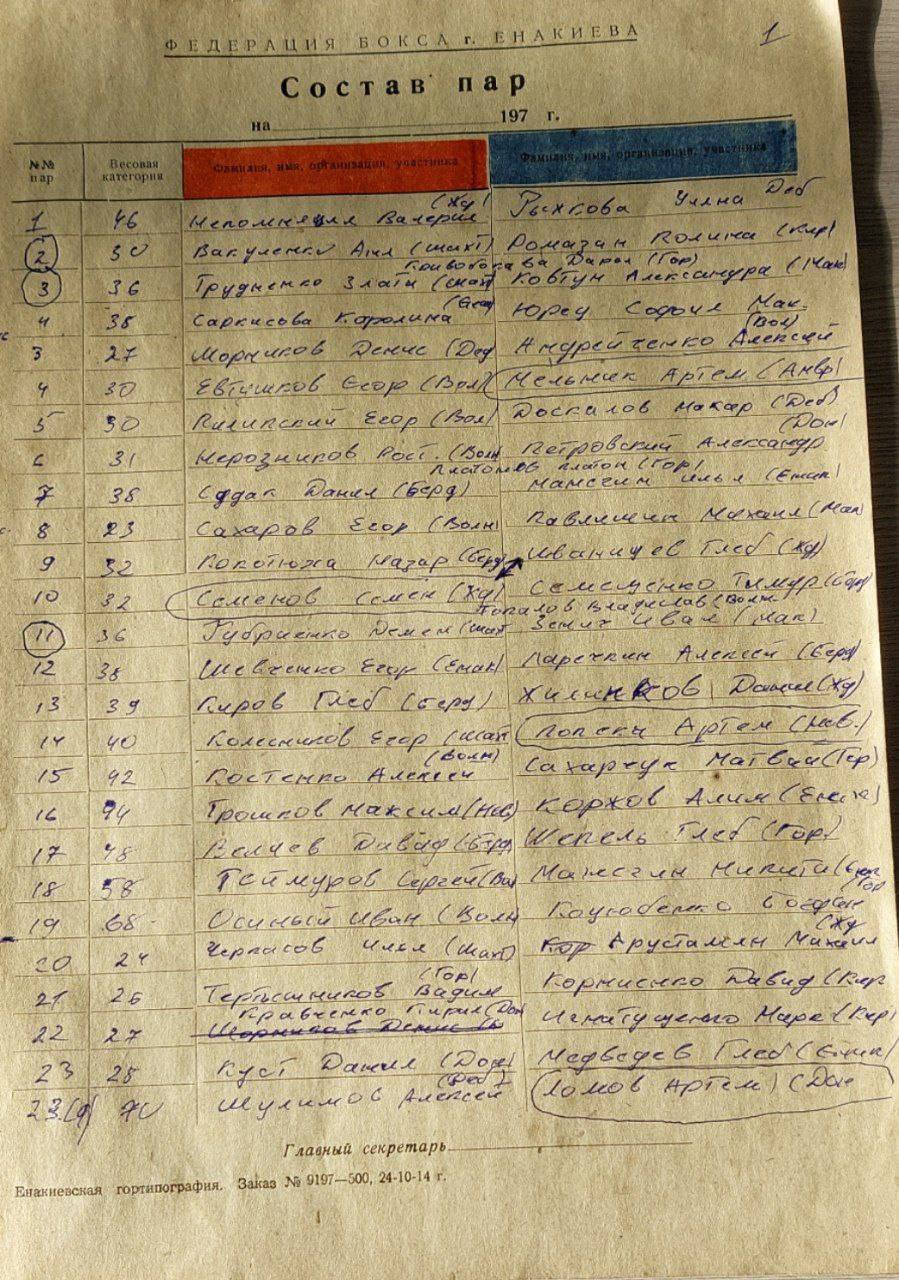 1
ФЕДЕРАЦИЯ БОКСА г. ЕНАКИЕВА
Состав пар
на 197 г.
№№ пар Весовая категория Фамилия, имя, организация, участника Фамилия, имя, организация, участника
(Жд)
1 46 Непомнящая Валерия Рыжкова Ульяна Деб
2 30 Вакуленко Аня (шахт) Ромазан Полина (Кир)
Кривобокова Дарья (Гор)
3 36 Трудненко Злата (шах) Ковтун Александра (Мак)
(Ена)
4 38 Саркисова Каролина Юред София Мак.
(Вол)
3 27 Морников Денис (Деб Андрейченко Алексей
4 30 Евтишков Егор (Вол) Мельник Артем (Амвр)
5 30 Пилипский Егор (Вол) Доскалов Макар (Деб)
(Дон)
6 31 Нерозников Рост. (Волн Петровский Александр
Платонов Платон (Гор)
7 38 Судак Данил (Берд) Илья (Енак)
8 23 Сахаров Егор (Волн) Павлишин Михаил (Мак)
9 32 Покотюжа Назар (Берд) Иванищев Глеб (Жд)
10 32 Семенов Семен (Жд) Семещенко Тимур (Берд)
Топалов Владислав (Волн
11 36 Губриенко Демен (шах Зенич Иван (Мак)
12 38 Шевченко Егор (Енак) Ларечкин Алексей (Берд)
13 39 Киров Глеб (Берд) Хилинков Данил (Жд)
14 40 Колесников Егор (шах Попеску Артем (Нов.)
(Волн)
15 42 Костенко Алексей Сахарчук Матвий (Гор)
16 44 Трошков Максим (Нов) Коржов Алим (Енак)
17 48 Велиев Давид (Берд) Шепель Глеб (Гор)
18 58 Теймуров Сергей (Вол) Никита (Енак
(Гор
19 68 Осиный Иван (Волн) Коцюбенко Богдан
(Жд
20 24 Черкасов Илья (шахт) Кор Арустамян Михаил
(Гор)
21 26 Тертышников Вадим Корниенко Давид (Кир
Кравченко Кирил (Дон)
22 27 Морников Денис Игнатущенко Марк (Кир)
23 28 Куст Данил (Дон) Медведев Глеб (Енак)
(Деб)
23.(9) 70 Шулимов Алексей Ломов Артем (Дон
Главный секретарь
Енакиевская гортипография. Заказ № 9197—500, 24-10-14 г.